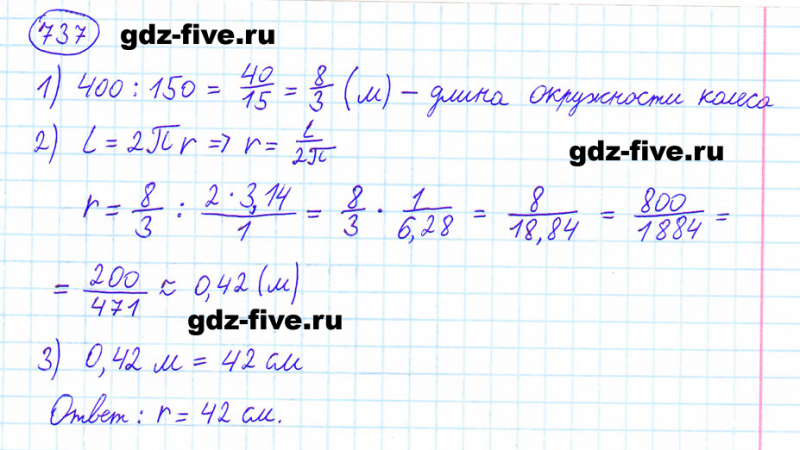 737 gdz-five.ru
1) 400 : 150 = 40/15 = 8/3 (м) – длина окружности колеса
2) l = 2πr ⇒ r = l/2π
gdz-five.ru
r = 8/3 : 2·3,14/1 = 8/3 · 1/6,28 = 8/18,84 = 800/1884 =
= 200/471 ≈ 0,42 (м)
gdz-five.ru
3) 0,42 м = 42 см
Ответ: r = 42 см.